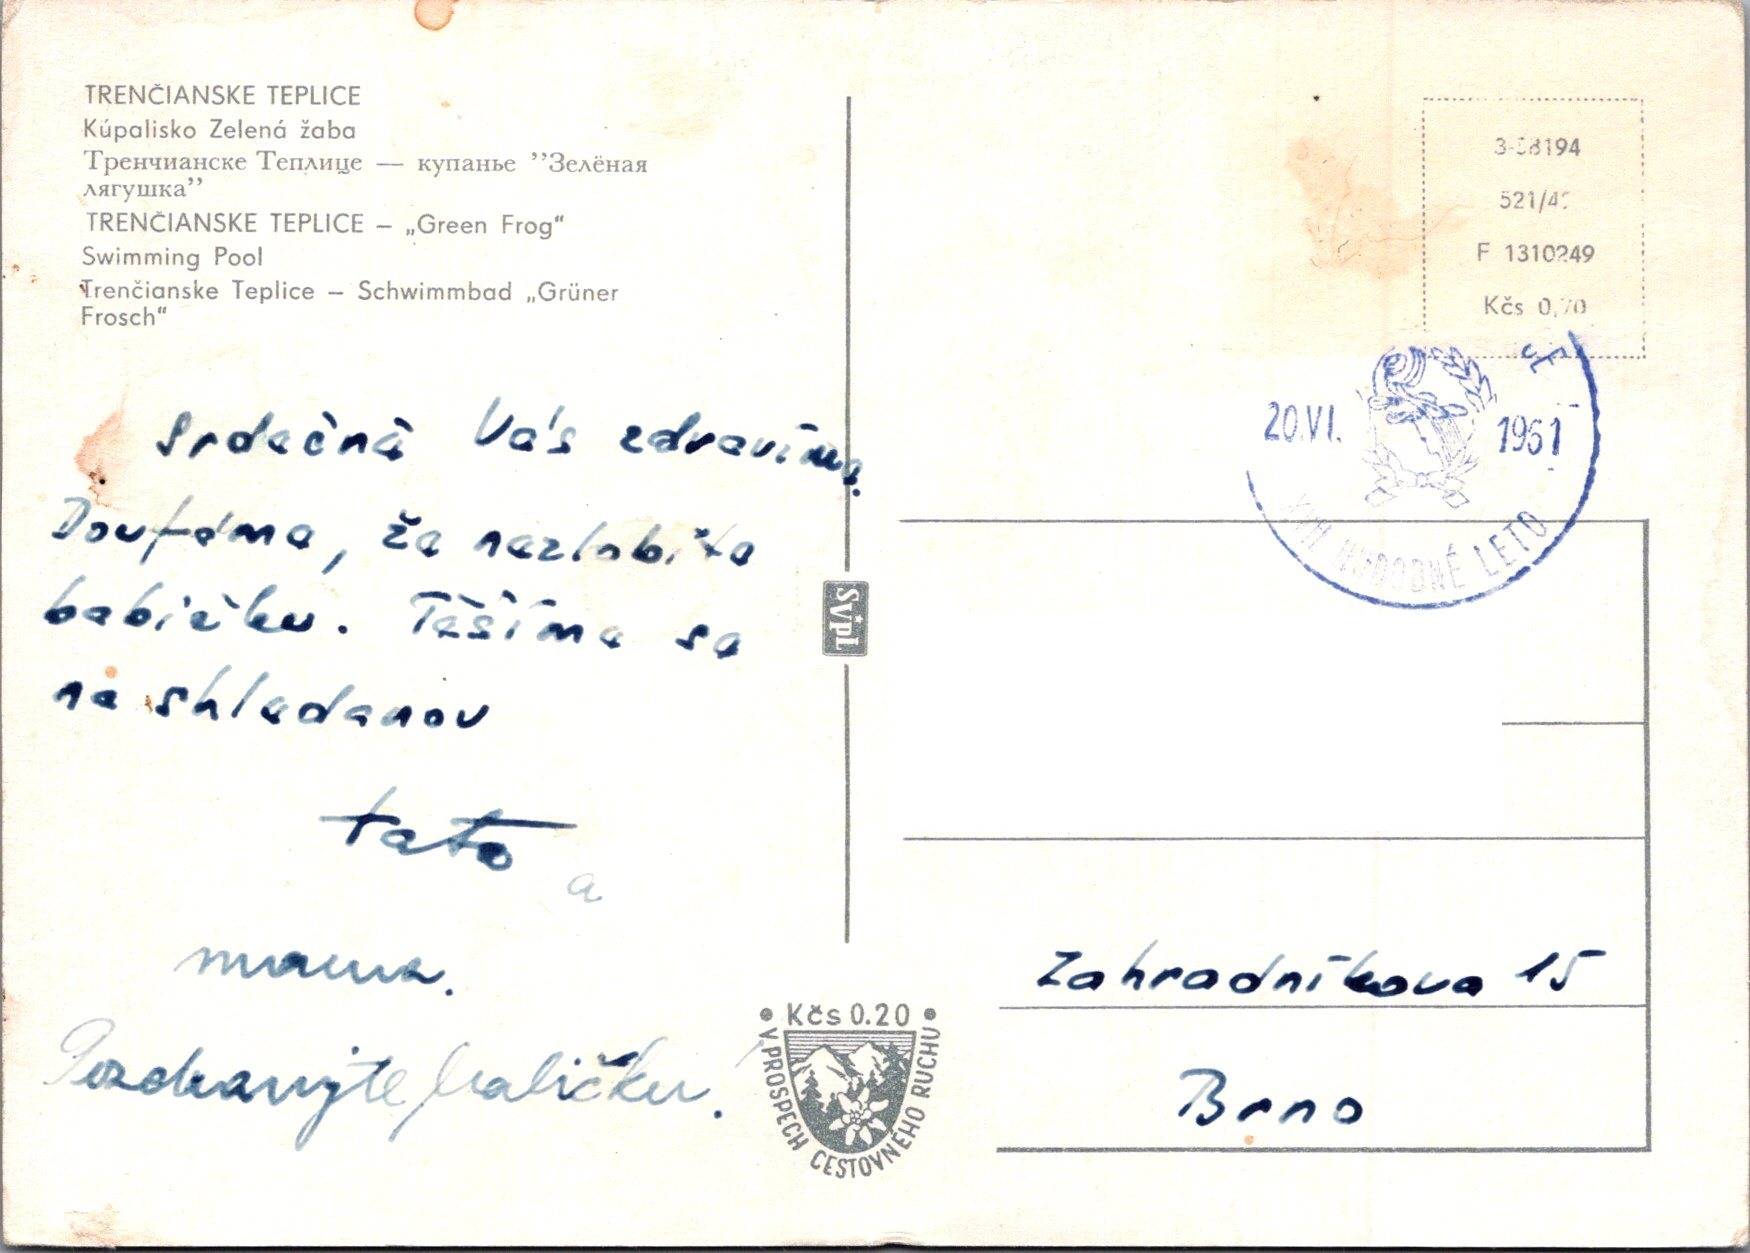 TRENČIANSKE TEPLICE
Kúpalisko Zelená žaba
Тренчианске Теплице — купанье ’’Зелёная
лягушка’’
TRENČIANSKE TEPLICE – „Green Frog“
Swimming Pool
Trenčianske Teplice – Schwimmbad „Grüner
Frosch“
Srdečně Vás zdravíme.
Doufáme, že nezlobíte
babičku. Těšíme se
na shledanou
tata
a
mama.
Pozdravujte babičku.
SVpL
Kčs 0.20
V PROSPECH CESTOVNÉHO RUCHU
3-58194
521/4
F 1310249
Kčs 0,70
20.VI. 1961
HUDOBNÉ LETO
Zahradníkova 15
Brno